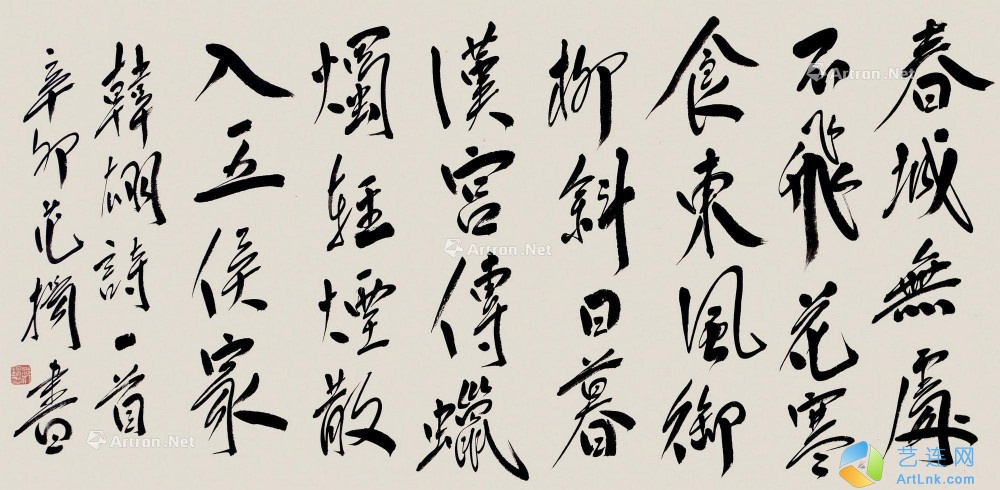 春城無處
不飛花寒
食東風御
柳斜日暮
漢宮傳蠟
燭輕煙散
入五侯家
韓翃詩一首
辛卯范書
Artron.Net
Artron.Net
Artron.Net
Artron.Net
艺连网
ArtLnk.com